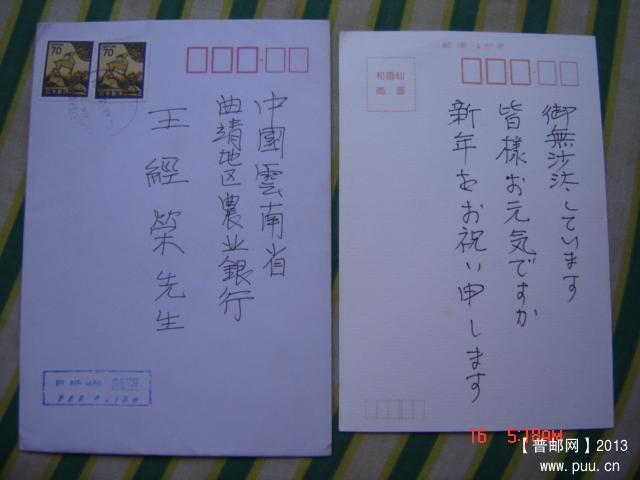 70
70
中國雲南省
曲靖地区農业銀行
王經榮先生
航空
郵便はがき
御無沙汰しています
皆様お元気ですか
新年をお祝い申します
16 5:18AM
【普邮网】2013
www.puu.cn